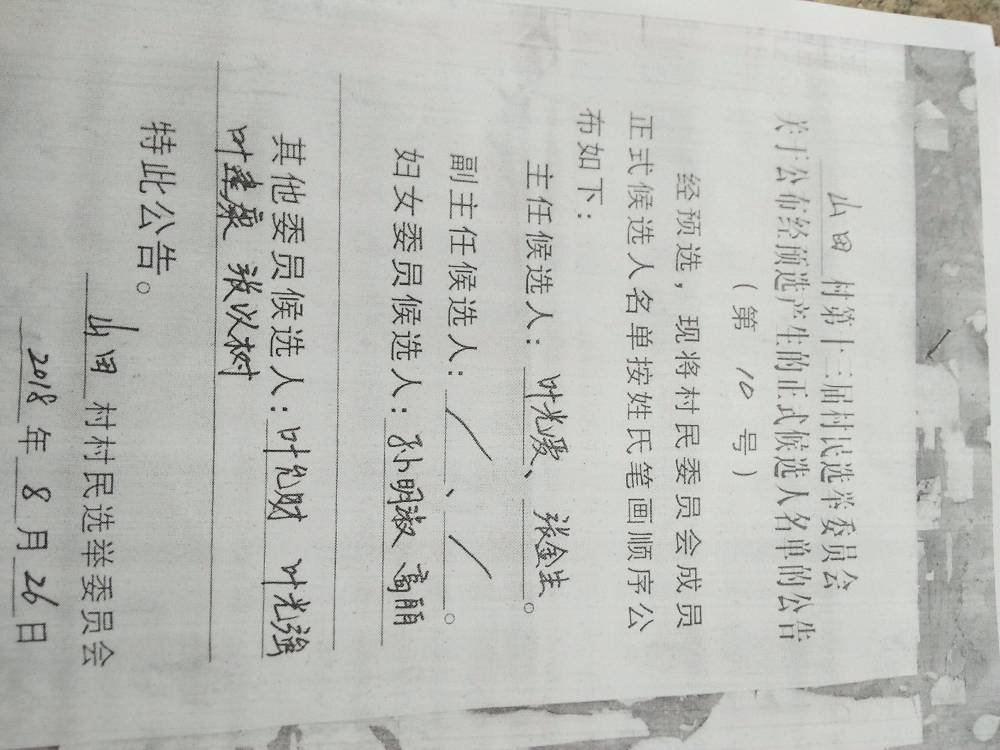 山田村第十三届村民选举委员会
关于公布经预选产生的正式候选人名单的公告
（第 10 号）
经预选，现将村民委员会成员
正式候选人名单按姓氏笔画顺序公
布如下：
主任候选人：叶光爱、张金生。
副主任候选人：/、/。
妇女委员候选人：孙明淑 高丽
其他委员候选人：叶允财 叶光强
叶建康 张以树
特此公告。
山田村村民选举委员会
2018年8月26日